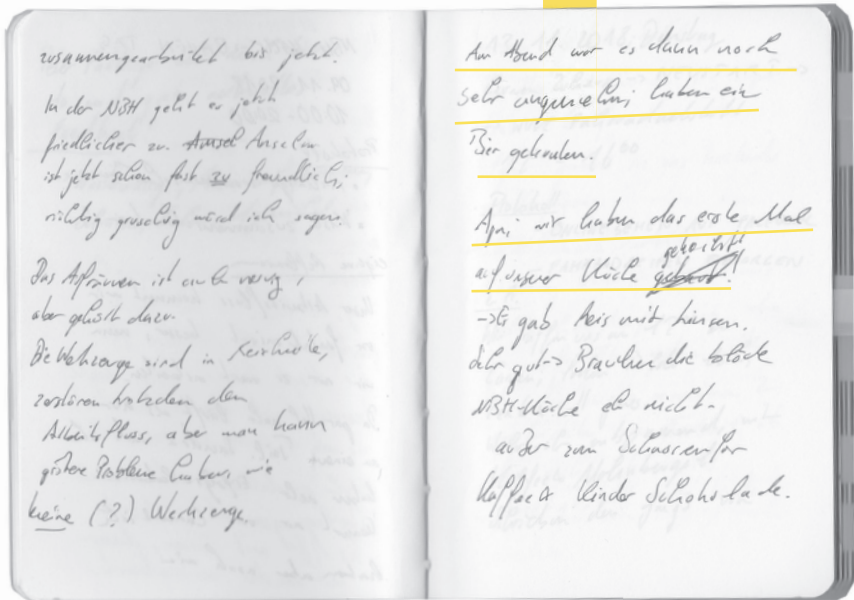 zusammengearbeitet bis jetzt.
In der NBH geht es jetzt
friedlicher zu. Amsel Anselm
ist jetzt schon fast zu freundlich,
richtig gruschig würd ich sagen
Das Aufräumen ist nervig,
aber gehört dazu.
Die Werkzeuge sind in
zerstören trotzdem den
Arbeitsfluss, aber man kann
größere Probleme haben, wie
keine (?) Werkzeuge.
Am Abend war es dann noch
sehr angenehm, haben ein
Bier getrunken.
wir haben das erste Mal
auf unserer Küche gekocht!
→ Es gab Reis mit Linsen.
Sehr gut → Brauchen die blöde
NBH-Küche eh nicht.
außer zum Schnorren für
Kaffee & Kinder Schokolade.